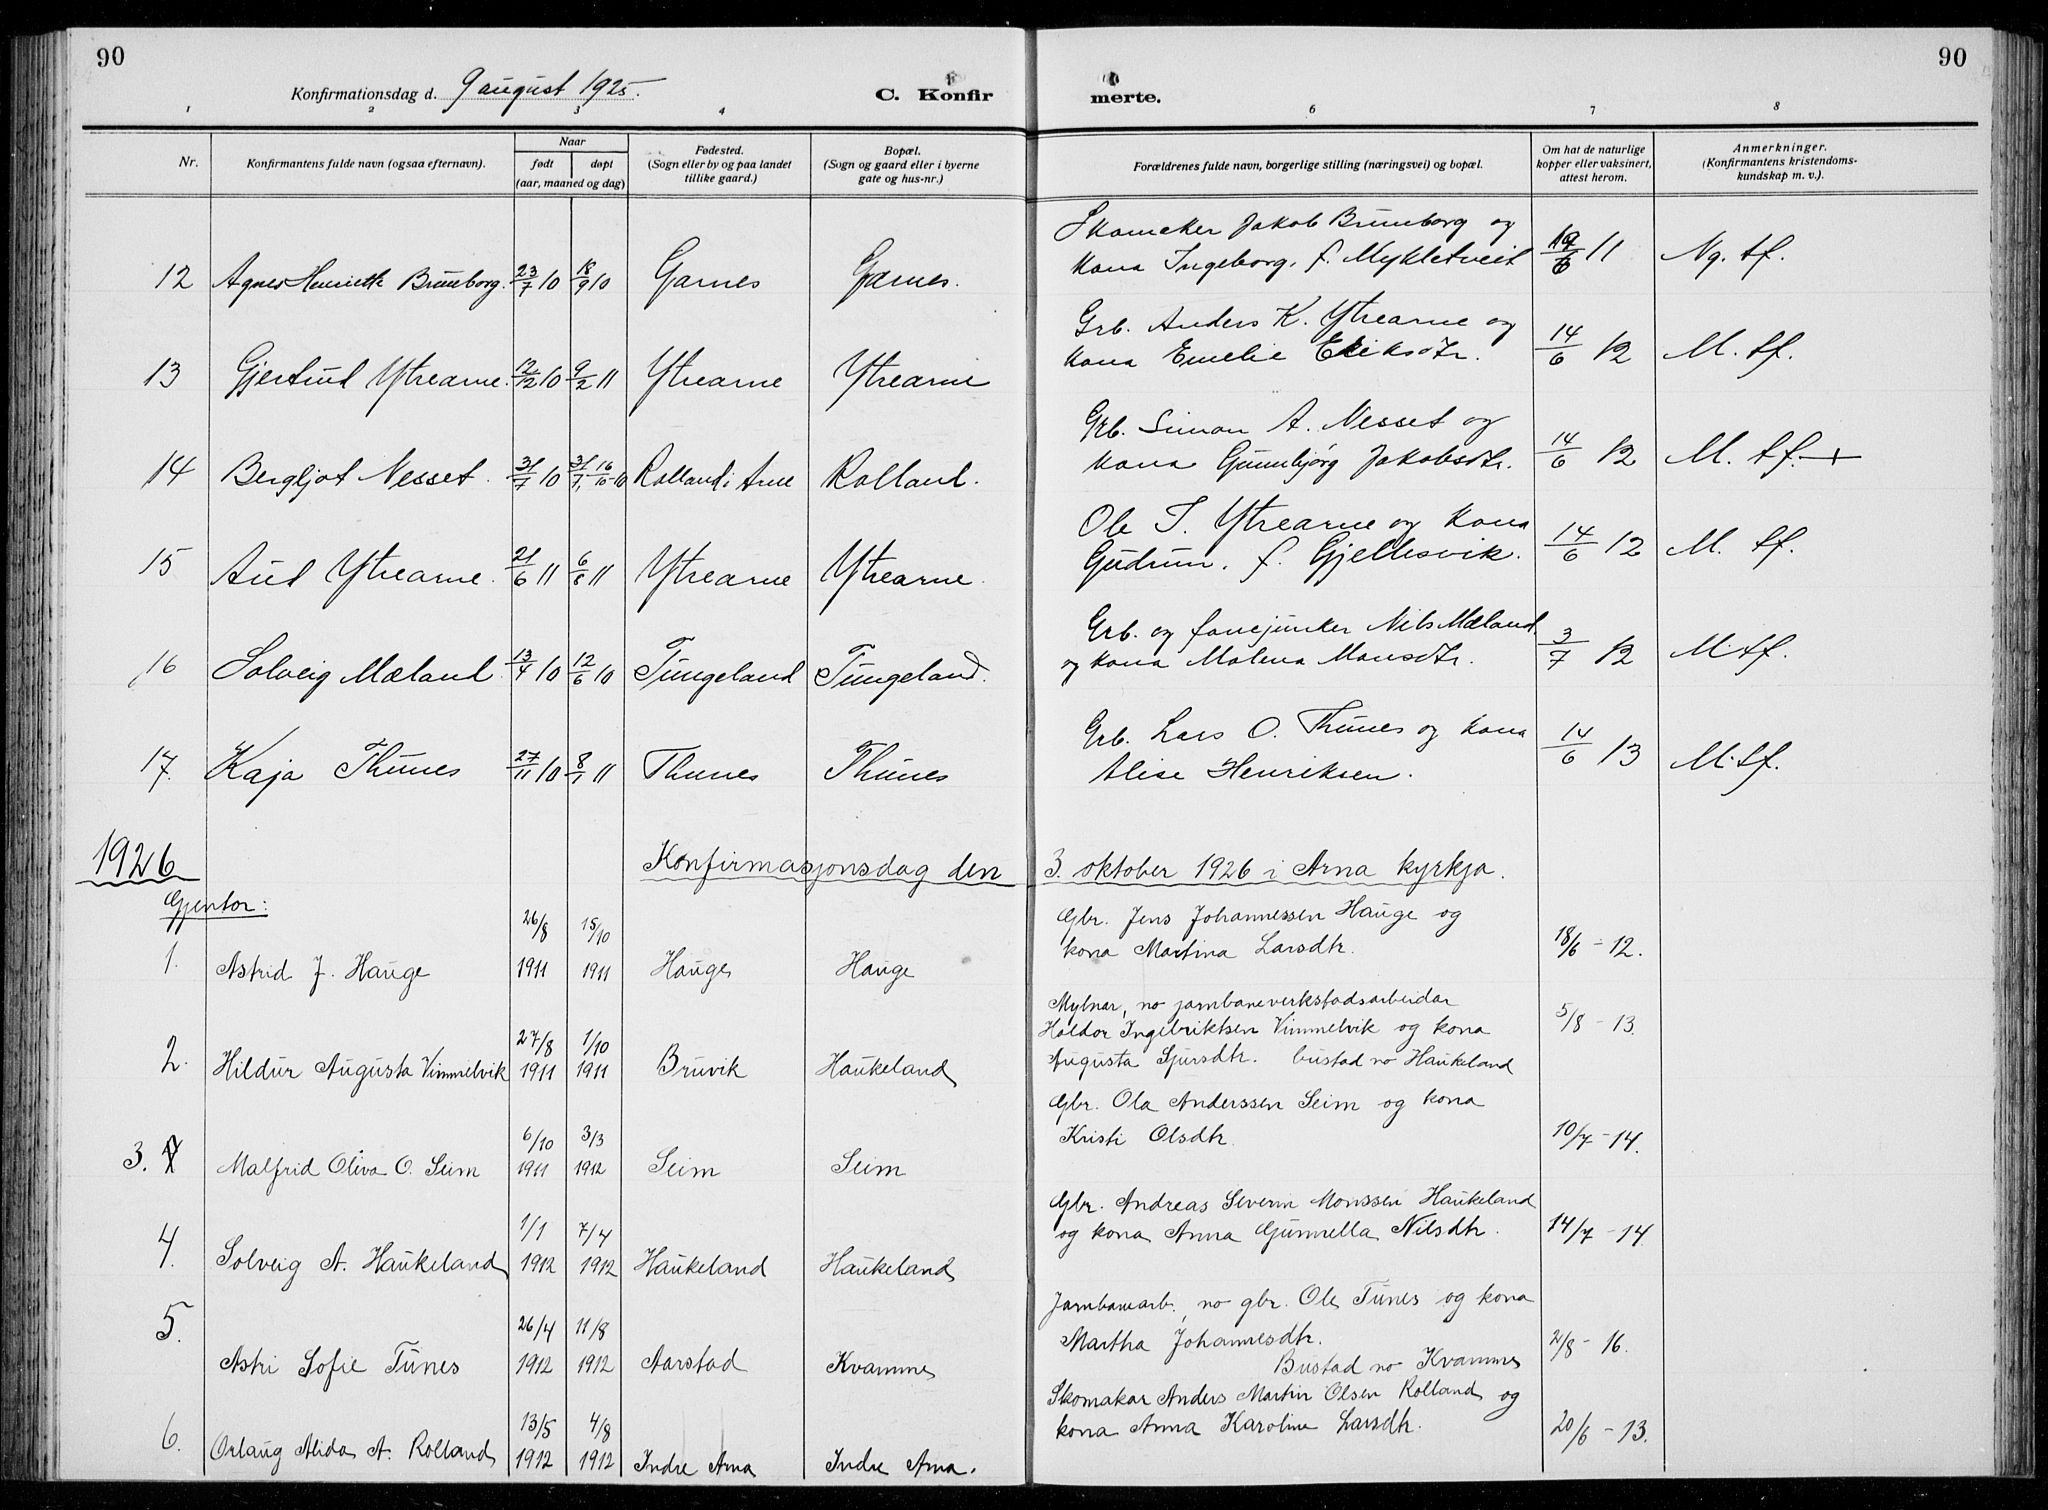 90
90
Konfirmationsdag d. 9 august 1925.
C. Konfir
merte.
1 2 3 4 6 7 8
Nr.
Konfirmantens fulde navn (ogsaa efternavn).
Naar
født
døpt
(aar, maaned og dag)
Fødested.
(Sogn eller by og paa landet
tillike gaard.)
Bopæl.
(Sogn og gaard eller i byerne
gate og hus-nr.)
Forældrenes fulde navn, borgerlige stilling (næringsvei) og bopæl.
Om hat de naturlige
kopper eller vaksinert,
attest herom.
Anmerkninger.
(Konfirmantens kristendoms-
kundskap m. v.).
Skomaker Jakob Brunborg og
12 Agnes Henriette Brunborg. 23/7 10 18/9 10 Garnes Garnes. kona Ingeborg, f. Mykletveit 11 Ng. tf.
Grb. Anders K. Ytrearne og
13 Gjertrud Ytrearne. 12/12 10 9/2 11 Ytrearne Ytrearne kona Emelie Eriksdtr. 14/6 12 M. tf.
Grb. Simon A. Nesset og
14 Bergljot Nesset. 31/7 10 31/7, 16/10-10 Rolland i Arne Rolland. kona Gunnbjørg Jakobsdtr. 14/6 12 M. tf. +
Ole T. Ytrearne og kona
15 Aud Ytrearne. 21/6 11 6/8 11 Ytrearne Ytrearne. Gudrun, f. Gjellesvik. 14/6 12 M. tf.
Grb. og fanejunker Nils Mæland
16 Solveig Mæland. 13/4 10 12/6 10 Tungeland Tungeland. og kona Malena Monsdtr. 3/7 12 M. tf.
Grb. Lars O. Thunes og kona
17. Kaja Thunes 27/11 10 8/1 11 Thunes Thunes Alise Henriksen. 14/6 13 M. tf.
1926 Konfirmasjonsdag den 3. oktober 1926 i Arna kyrkja.
Gjentor:
26/8 15/10 Gbr. Jens Johannessen Hauge og
1. Astrid J. Hauge 1911 1911 Hauge Hauge kona Martina Larsdtr. 18/6 - 12.
Mylnar, no jarnbaneverkstadsarbeidar
27/8 1/10 Haldor Ingebriktsen Vimmelvik og kona 5/8 - 13.
2. Hildur Augusta Vimmelvik 1911 1911 Bruvik Haukeland Augusta Sjursdtr. bustad no Haukeland
6/10 3/3 Gbr. Ola Anderssen Seim og kona
3. Malfrid Oliva O. Seim 1911 1912 Seim Seim Kristi Olsdtr. 10/7 - 14.
1/1 7/4 Gbr. Andreas Severin Monssen Haukeland
4. Solveig A. Haukeland 1912 1912 Haukeland Haukeland og kona Anna Gunnella Nilsdtr. 14/7 - 14.
26/4 11/8 Jarnbanearb., no gbr. Ole Tunes og kona
5. Martha Johannesdtr. 2/8 - 16.
Astri Sofie Tunes 1912 1912 Aarstad Kvamme Bustad no Kvamme
13/5 4/8 Skomakar Anders Martin Olsen Rolland og
6. kona Anna Karoline Larsdtr. 20/6 - 13.
Orlaug Alida A. Rolland 1912 1912 Indre Arna Indre Arna.